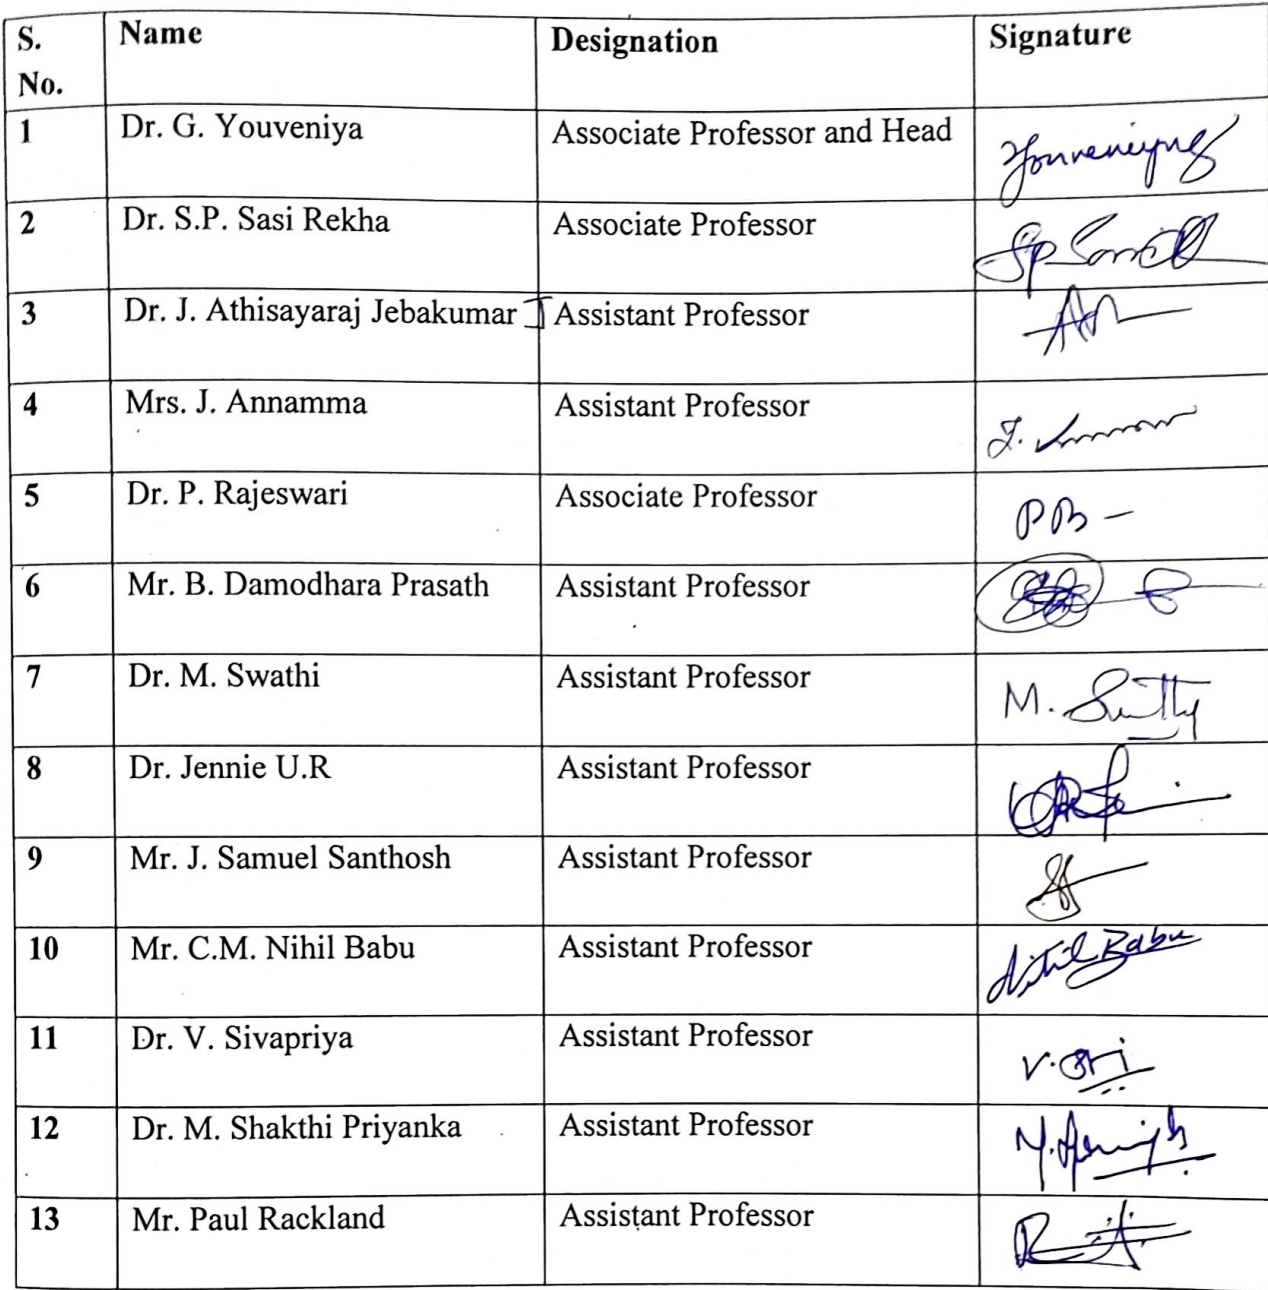 S. No. Name Designation Signature
1 Dr. G. Youveniya Associate Professor and Head Youveniya
2 Dr. S.P. Sasi Rekha Associate Professor
3 Dr. J. Athisayaraj Jebakumar J Assistant Professor
4 Mrs. J. Annamma Assistant Professor
5 Dr. P. Rajeswari Associate Professor
6 Mr. B. Damodhara Prasath Assistant Professor
7 Dr. M. Swathi Assistant Professor M.
8 Dr. Jennie U.R Assistant Professor
9 Mr. J. Samuel Santhosh Assistant Professor
10 Mr. C.M. Nihil Babu Assistant Professor Nihil Babu
11 Dr. V. Sivapriya Assistant Professor
12 Dr. M. Shakthi Priyanka Assistant Professor
13 Mr. Paul Rackland Assistant Professor